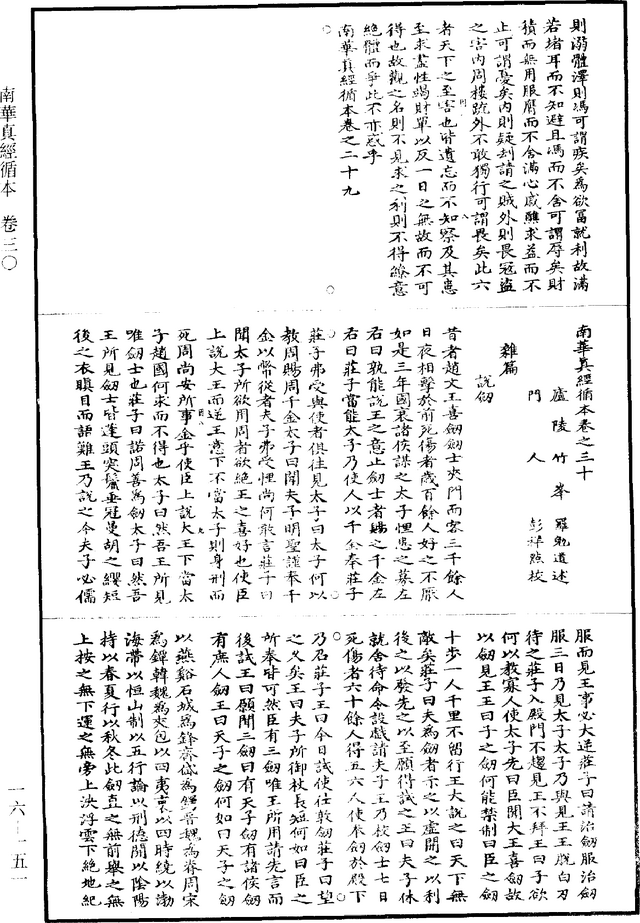 南華真經循本 卷三〇
則溺體澤則馮可謂疾矣為欲富就利故滿
若堵耳而不知避且馮而不舍可謂辱矣財
積而無用服膺而不舍滿心戚醮求益而不
止可謂憂矣內則疑刦請之賊外則畏寇盜
之害內周樓疏外不敢獨行可謂畏矣此六
者天下之至害也皆遺忘而不知察及其患
至求盡性竭財單以反一日之無故而不可
得也故觀之名則不見求之利則不得繚意
絕體而爭此不亦惑乎
南華真經循本卷之二十九
南華真經循本卷之三十
廬陵竹峯 羅勉道述
門人 彭祥點校
雜篇
說劒
昔者趙文王喜劒劒士夾門而客三千餘人
日夜相擊於前死傷者歲百餘人好之不厭
如是三年國衰諸侯謀之太子悝患之募左
右曰孰能說王之意止劒士者賜之千金左
右曰莊子當能太子乃使人以千金奉莊子
莊子弗受與使者俱往見太子曰太子何以
教周賜周千金太子曰聞夫子明聖謹奉千
金以幣從者夫子弗受悝尚何敢言莊子曰
聞太子所欲用周者欲絕王之喜好也使臣
上說大王而逆王意下不當太子則身刑而
死周尚安所事金乎使臣上說大王下當太
子趙國何求而不得也太子曰然吾王所見
唯劒士也莊子曰諾周善為劒太子曰然吾
王所見劒士皆蓬頭突鬢垂冠曼胡之纓短
後之衣瞋目而語難王乃說之今夫子必儒
服而見王事必大逆莊子曰請治劒服治劒
服三日乃見太子太子乃與見王王脫白刃
待之莊子入殿門不趨見王不拜王曰子欲
何以教寡人使太子先曰臣聞大王喜劒故
以劒見王王曰子之劒何能禁制曰臣之劒
十步一人千里不留行王大說之曰天下無
敵矣莊子曰夫為劒者示之以虛開之以利
後之以發先之以至願得試之王曰夫子休
就舍待命令設戲請夫子王乃校劒士七日
死傷者六十餘人得五六人使奉劒於殿下
乃召莊子王曰今日試使士敦劒莊子曰望
之久矣王曰夫子所御杖長短何如曰臣之
所奉皆可然臣有三劒唯王所用請先言而
後試王曰願聞三劒曰有天子劒有諸侯劒
有庶人劒王曰天子之劒何如曰天子之劒
以燕谿石城為鋒齊岱為鍔晉魏為脊周宋
為鐔韓魏為夾包以四夷裹以四時繞以渤
海帶以恒山制以五行論以刑德開以陰陽
持以春夏行以秋冬此劒直之無前舉之無
上按之無下運之無旁上決浮雲下絕地紀
一六—一五一